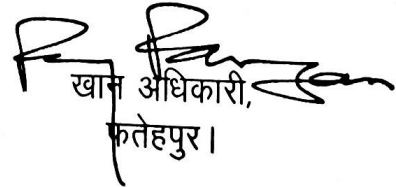 खान अधिकारी,
फतेहपुर।